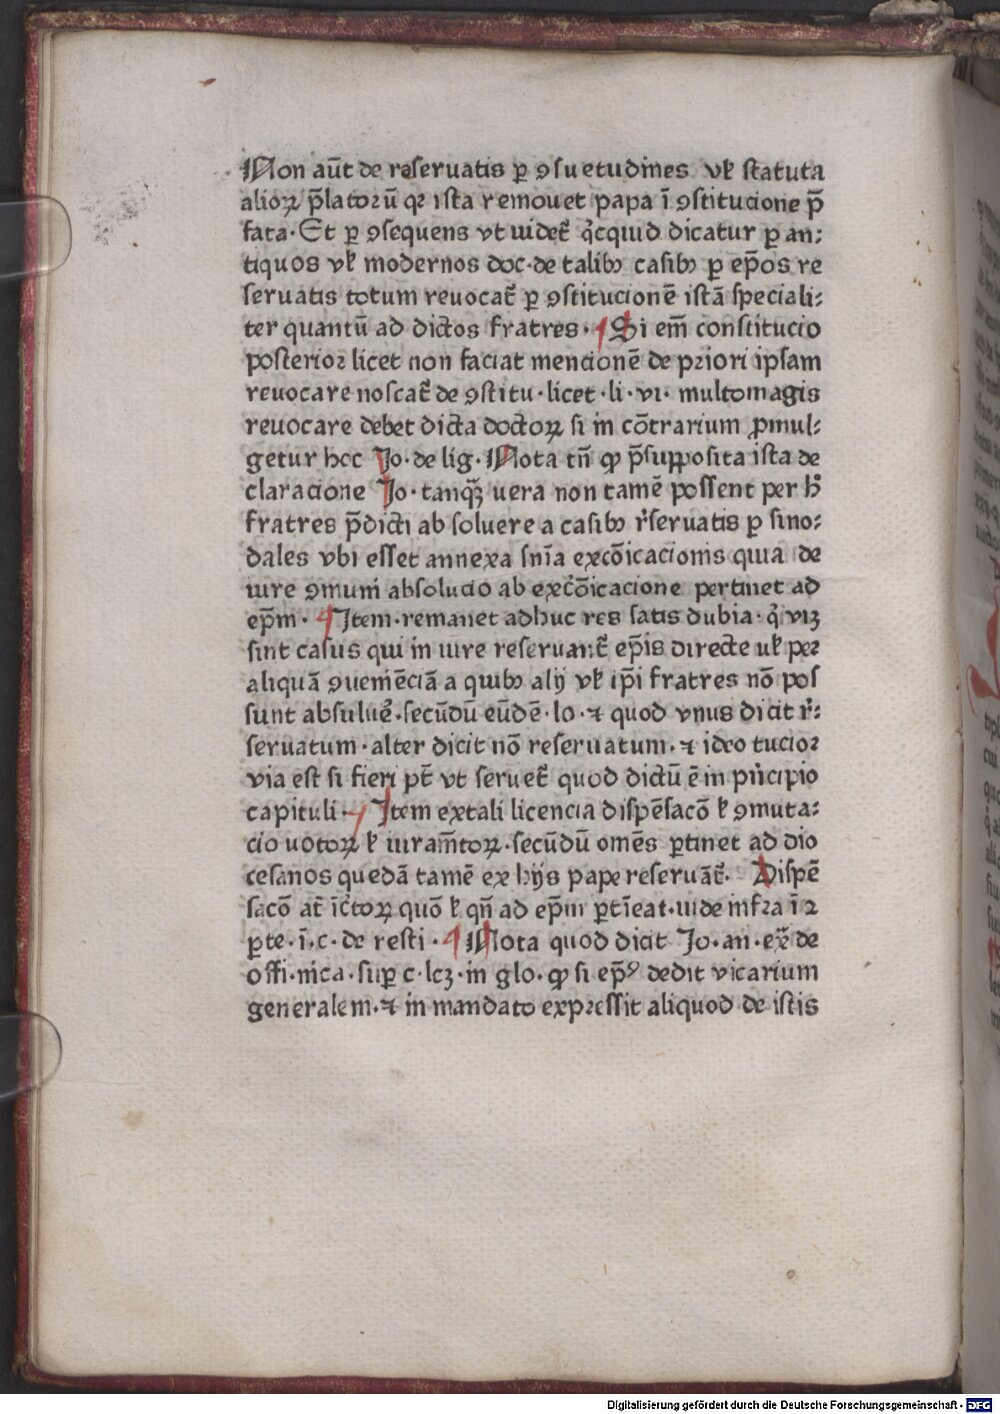 Non aut̄ de reſeruatis ꝑ ꝯſuetudines vꝉ ſtatuta
alioꝝ p̄latorū qꝛ iſta remouet papa ī ꝯſtitucione p̄
fata·Et ꝑ ꝯſequens vt uidet̄ q̇cquid dicatur ꝑ an⸗
tiquos vꝉ modernos doc·de talibꝫ caſibꝫ ꝑ ep̄os re
ſeruatis totum reuocat̄ ꝑ ꝯſtitucionē iſtā ſpeciali⸗
ter quantū ad dictos fratres· ¶Si em̄ conſtitucio
poſterioꝛ licet non faciat mencionē de pꝛiori ipſam
reuocare noſcat̄ de ꝯſtitu·licet·li·vi· multomagis
reuocare debet dicta doctoꝝ ſi in cōtrarium ꝓmul⸗
getur hec Jo·de lig·Nota tn̄ ꝙ p̄ſuppoſita iſta de
claracione Jo·tanqꝫ̄ uera non tamē poſſent per h̄
fratres p̄dicti ab ſoluere a caſibꝫ r̄ſeruatis ꝑ ſino⸗
dales vbi eſſet annexa ſnīa excōicacionis quia de
iure ꝯmuni abſolucio ab exc̄ōicacione pertinet ad
ep̄m· ¶Jtem·remanet adhuc res ſatis dubia·q̇ viꝫ
ſint caſus qui in iure reſeruant̄ ep̄is directe uꝉ peꝛ
aliquā ꝯueniēciā a quibꝫ alij vꝉ ip̄i fratres nō poſ
ſunt abſuluē̄·ſecūdū eūdē·lo·⁊ quod vnus dicit r̄⸗
ſeruatum·alter dicit nō reſeruatum·⁊ ideo tucioꝛ
via eſt ſi fieri pt̄ vt ſeruet̄ quod dictū ē in pͥncipio
capituli·¶ Jtem extali licencia diſpēſacō ꝉ ꝯmuta⸗
cio uotoꝝ ꝉ iuram̄toꝝ·ſecūdū omēs ꝑtinet ad dio
ceſanos quedā tamē ex hijs pape reſeruāt̄· Diſpē
ſacō at̄ ic̄toꝝ quō ꝉ qn̄ ad ep̄m ꝑtīeat·uide infꝛa ī 2
ꝑte·ī·c·de reſti·¶Nota quod dicit Jo·an·ex̄ de
offi·uica·ſuꝑ c·lcꝫ·in glo·ꝙ ſi ep̄ꝰ dedit vicarium
generalem·⁊ in mandato expꝛeſſit aliquod de iſtis
Digitalisierung gefördert durch die Deutsche Forschungsgemeinschaft - DFG